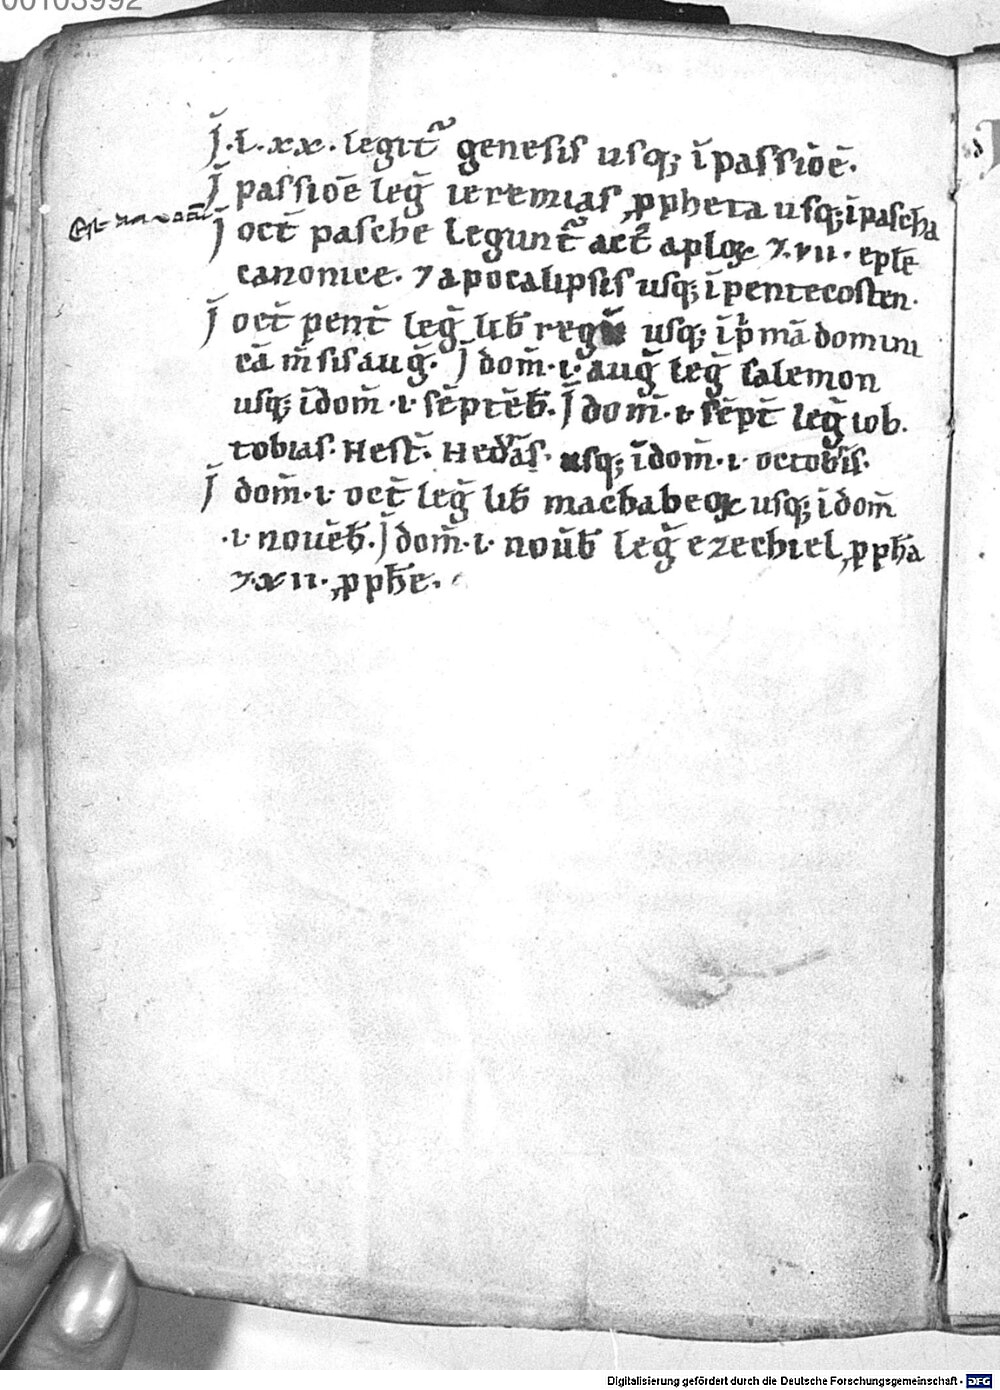 00103992
J̄.L.xx. legit᷑ genesis usq; ī passiōē.
J̄ passiōē leḡ ieremias ꝓpheta usq; ī pascha
J̄ oct̄ pasche legunt᷑ act᷑ aploꝝ ⁊ .vii. eple
canonice. ⁊ apocalipsis usq; ī pentecosten.
J̄ oct̄ pent̄ leḡ lib̄ regū usq; ī pͥmā domini
cā m̄sis auḡ. J̄ dom̄ .i. auḡ leḡ salemon
usq; ī dom̄ .i. sēptēb̄. J̄ dom̄ .i. sēpt̄ leḡ iob.
tobias. Hest̄. Hedᷓs. usq; ī dom̄ .i. octobꝛ̄is.
J̄ dom̄ .i. oct̄ leḡ lib̄ machabeoꝝ usq; ī dom̄
.i. novēb̄. J̄ dom̄ .i. nov̄b̄ leḡ ezechiel ꝓph̄a
⁊ .xii. ꝓph̄e.
Digitalisierung gefördert durch die Deutsche Forschungsgemeinschaft - DFG